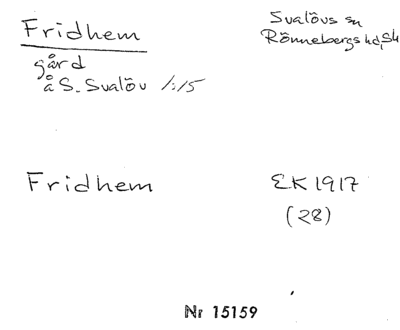 Fridhem
Svalövs sn
Rönnebergs hd, Sk
gård
å S. Svalöv 1:15
Fridhem
EK 1917
(28)
Nr 15159